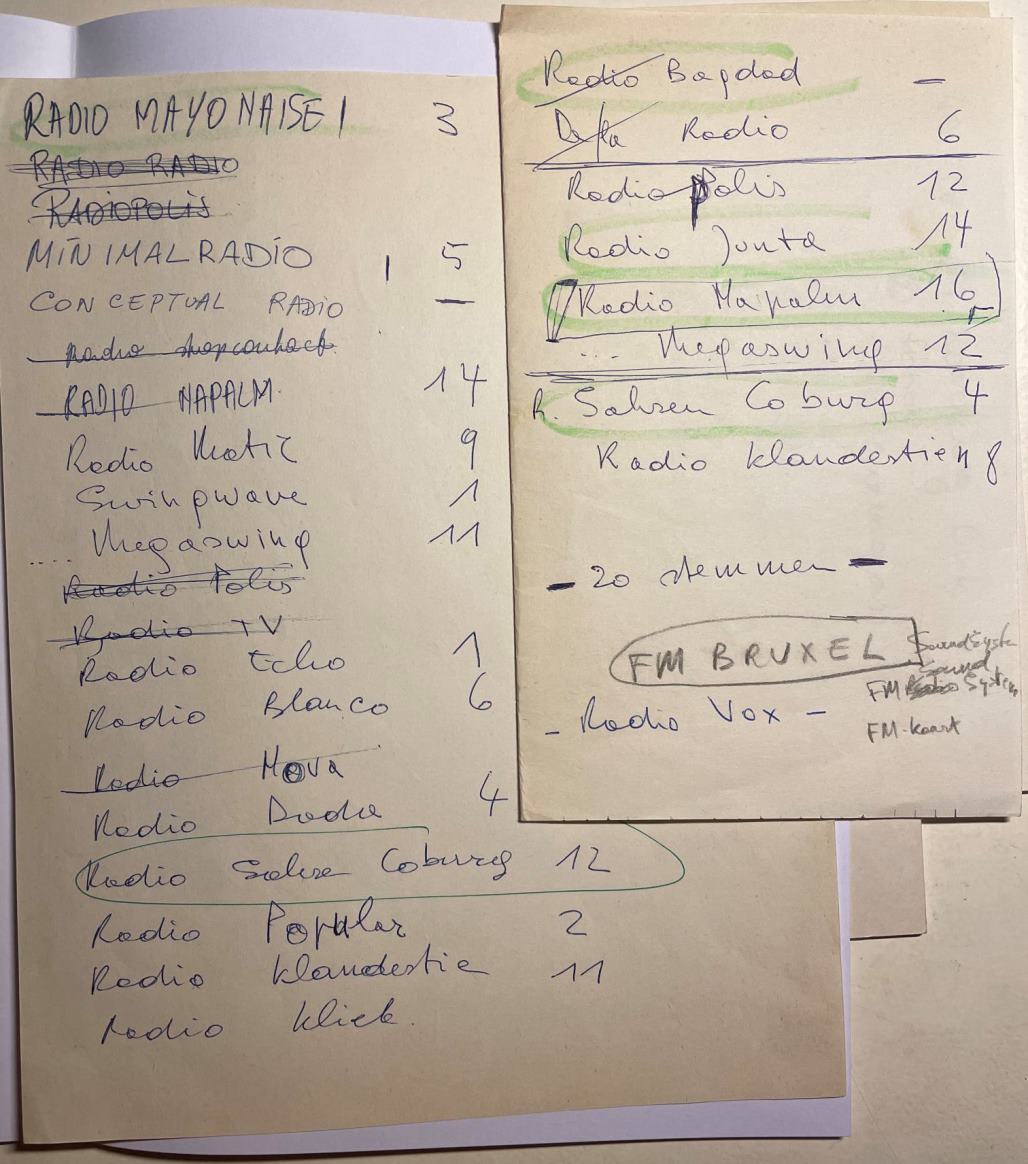 RADIO MAYONAISE! 3
RADIO RADIO
RADIOPOLIS
MINIMAL RADIO 5
CONCEPTUAL RADIO —
Radio stopcontact
RADIO NAPALM. 14
Radio Matic 9
Swingwave 1
.... Megaswing 11
Radio Polis
Radio TV
Radio Echo 1
Radio Blanco 6
Radio Nova
Radio Dada 4
Radio Sakse Coburg 12
Radio Popular 2
Radio klandestie 11
Radio kliek.
Radio Bagdad —
Radio 6
Radio Polis 12
Radio Junta 14
Radio Napalm 16
... Megaswing 12
R. Saksen Coburg 4
Radio klandestien 8
- 20 stemmen -
FM BRUXEL
SoundSyste
Sound
FM Radio System
- Radio Vox -
FM-kaart